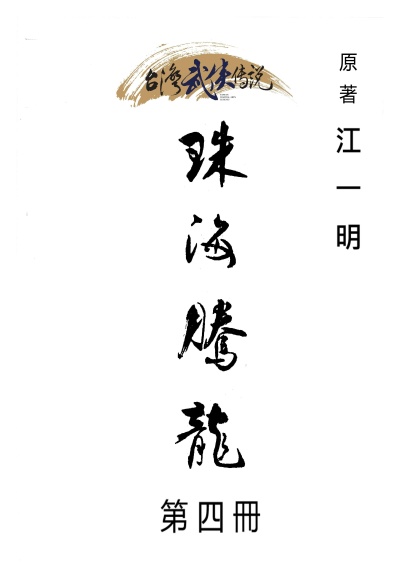 台灣武俠传说
原著 江一明
珠海騰龍
第四冊